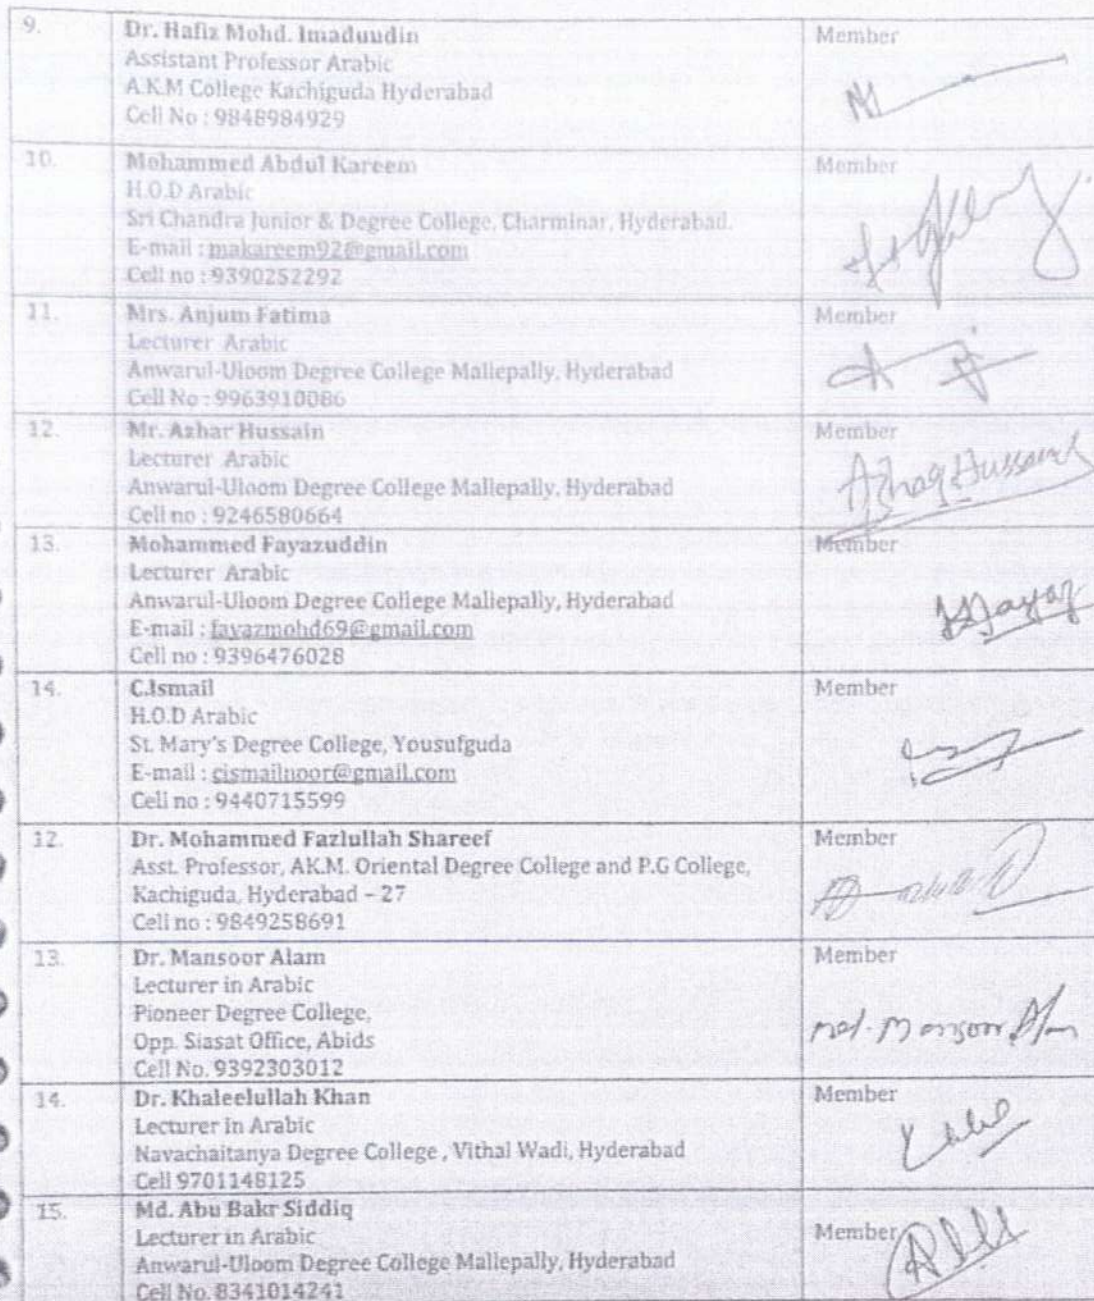 9.
Dr. Hafiz Mohd. Imaduudin
Assistant Professor Arabic
A.K.M College Kachiguda Hyderabad
Cell No : 9848984929
Member
10.
Mohammed Abdul Kareem
H.O.D Arabic
Sri Chandra Junior & Degree College, Charminar, Hyderabad.
E-mail : makareem92@gmail.com
Cell no : 9390252292
Member
11.
Mrs. Anjum Fatima
Lecturer Arabic
Anwarul-Uloom Degree College Mallepally, Hyderabad
Cell No : 9963910086
Member
12.
Mr. Azhar Hussain
Lecturer Arabic
Anwarul-Uloom Degree College Mallepally, Hyderabad
Cell no : 9246580664
Member
13.
Mohammed Fayazuddin
Lecturer Arabic
Anwarul-Uloom Degree College Mallepally, Hyderabad
E-mail : fayazmohd69@gmail.com
Cell no : 9396476028
Member
14.
C.Ismail
H.O.D Arabic
St. Mary's Degree College, Yousufguda
E-mail : cismailnoor@gmail.com
Cell no : 9440715599
Member
12.
Dr. Mohammed Fazlullah Shareef
Asst. Professor, AK.M. Oriental Degree College and P.G College,
Kachiguda, Hyderabad – 27
Cell no : 9849258691
Member
13.
Dr. Mansoor Alam
Lecturer in Arabic
Pioneer Degree College,
Opp. Siasat Office, Abids
Cell No. 9392303012
Member
Md. Mansoor Alam
14.
Dr. Khaleelullah Khan
Lecturer in Arabic
Navachaitanya Degree College , Vithal Wadi, Hyderabad
Cell 9701148125
Member
15.
Md. Abu Bakr Siddiq
Lecturer in Arabic
Anwarul-Uloom Degree College Mallepally, Hyderabad
Cell No. 8341014241
Member